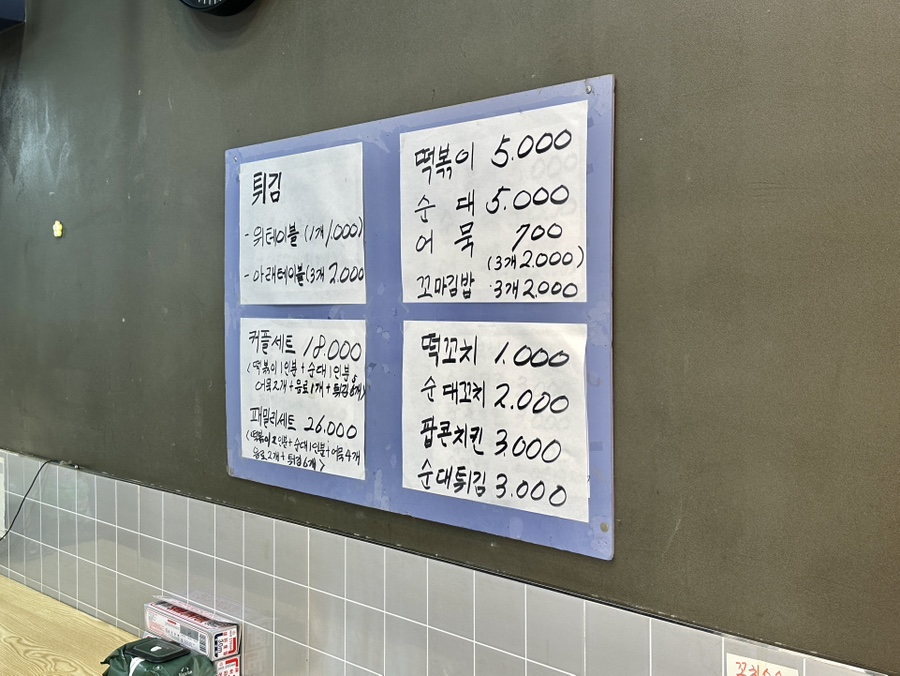 튀김
- 위테이블 (1개 1000)
- 아래테이블 (3개 2.000
떡볶이 5.000
순 대 5.000
어 묵 700
(3개 2.000)
꼬마김밥 3개 2.000
커플세트 18.000
(떡볶이 1인분 + 순대 1인분
어묵 2개 + 음료 1개 + 튀김 6개)
패밀리세트 26.000
(떡볶이 2인분 + 순대 1인분 + 어묵 4개
음료 2개 + 튀김 6개)
떡꼬치 1.000
순대꼬치 2.000
팝콘치킨 3.000
순대튀김 3.000